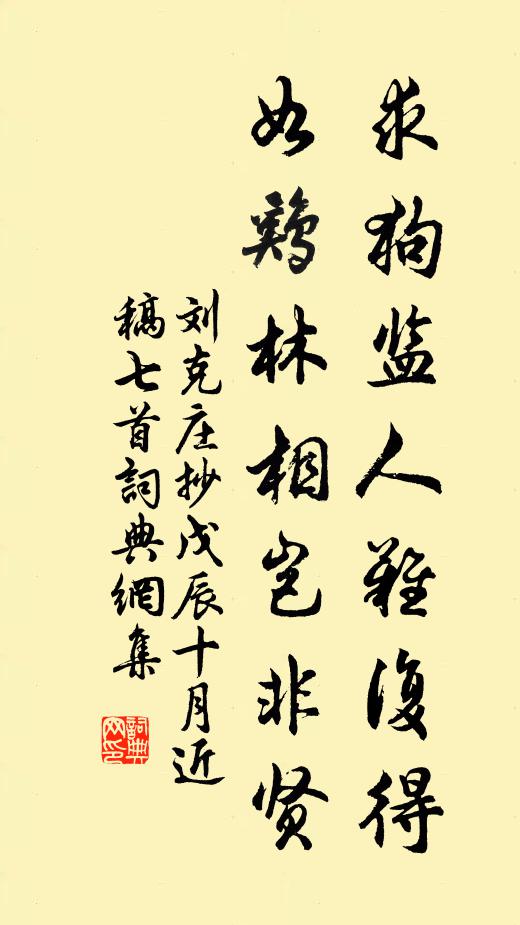 求狗监人难復得
如鷄林相岂非贤
刘克庄抄戊辰十月近
稿七首詞典網集
詞典
网印